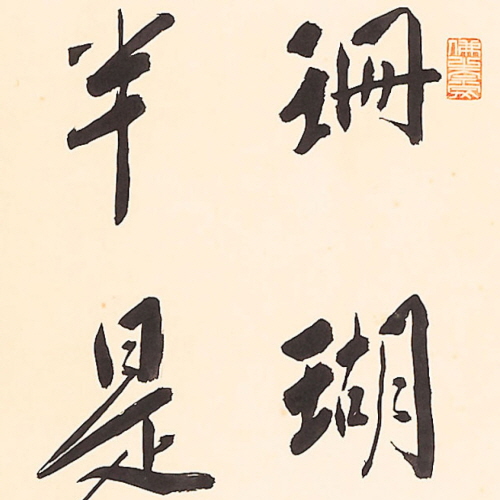 珊瑚
半是